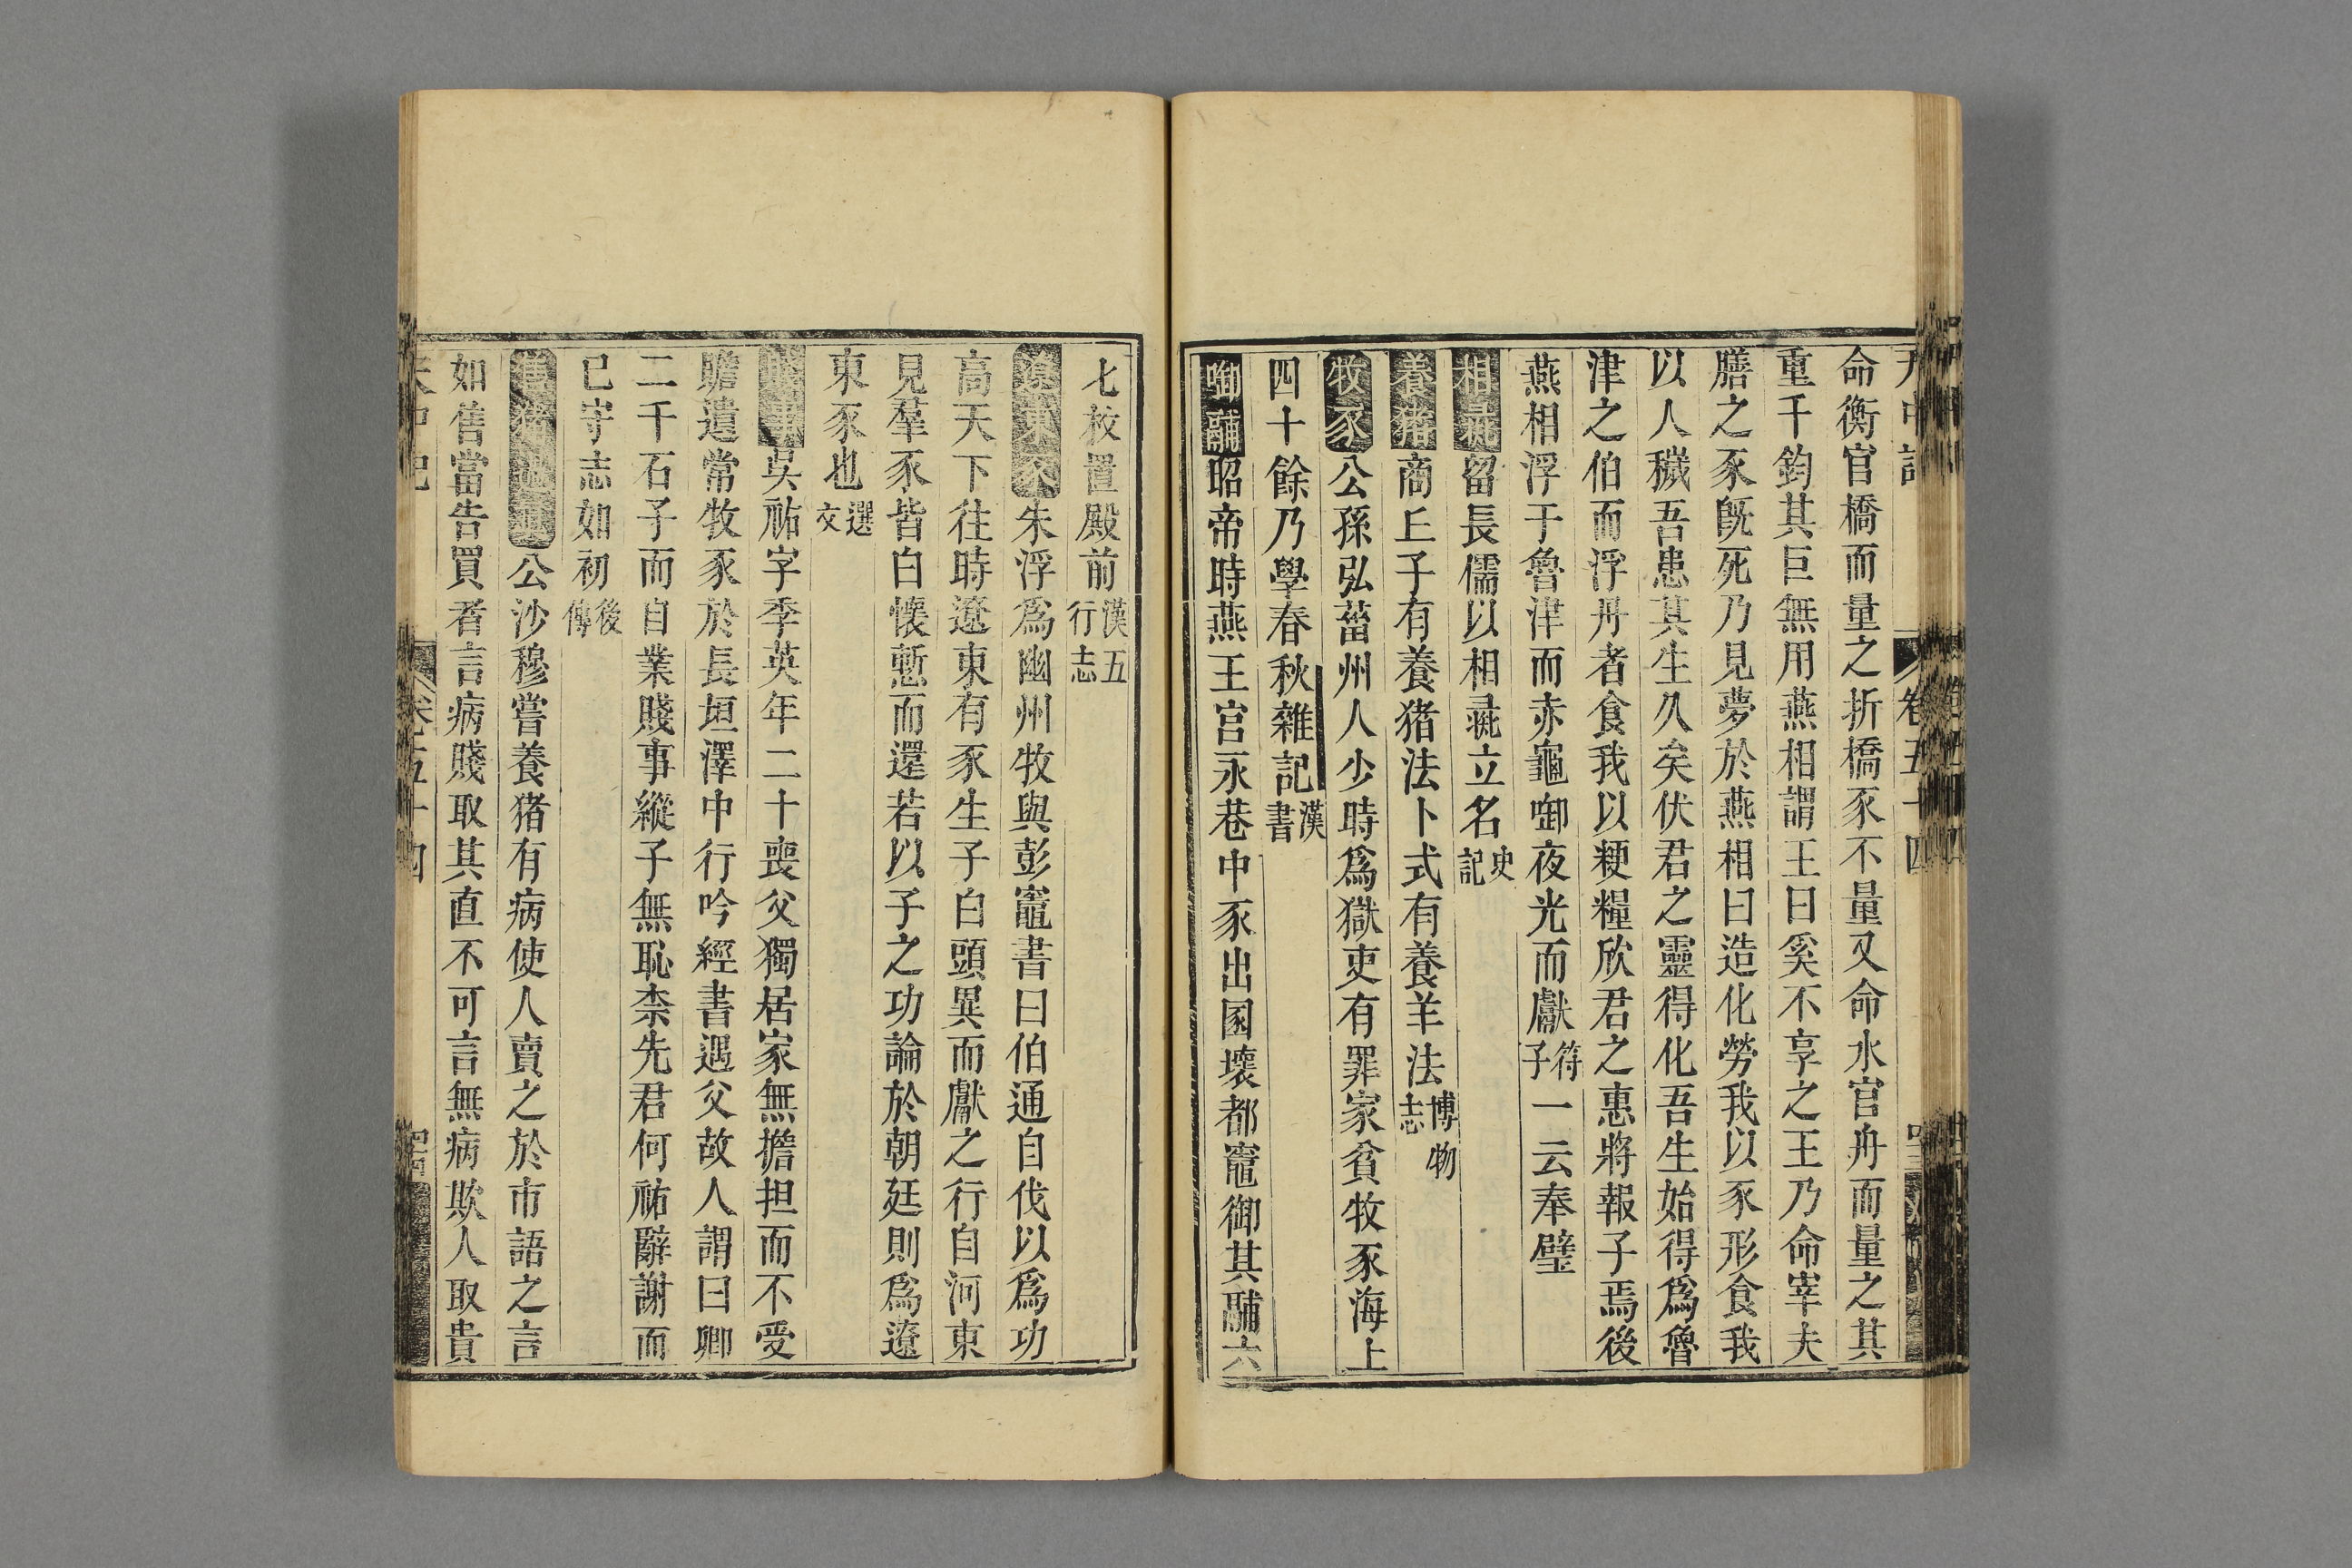 卷五十四
命衡官橋而量之折橋豕不量又命水官舟而量之其
重千鈞其巨無用燕相謂王曰奚不享之王乃命宰夫
膳之豕旣死乃見夢於燕相曰造化勞我以豕形食我
以人穢吾患其生久矣伏君之靈得化吾生始得爲魯
津之伯而浮舟者食我以粳糧欣君之惠將報子焉後
燕相浮于魯津而赤龜啣夜光而獻符子一云奉璧
相彘留長儒以相彘立名史記
養猪商丘子有養猪法卜式有養羊法博物志
牧豕公孫弘菑州人少時爲獄吏有罪家貧牧豕海上
四十餘乃學春秋雜記漢書
啣鬴昭帝時燕王宮永巷中豕出圂壞都竈御其鬴六
七枚置殿前漢五行志
遼東豕朱浮爲幽州牧與彭寵書曰伯通自伐以爲功
高天下往時遼東有豕生子白頭異而獻之行自河東
見羣豕皆白懷慙而還若以子之功論於朝廷則爲遼
東豕也文選
賤事吳祐字季英年二十喪父獨居家無擔担而不受
贍遺常牧豕於長垣澤中行吟經書遇父故人謂曰卿
二千石子而自業賤事縱子無恥柰先君何祐辭謝而
已守志如初後傳
公沙穆嘗養猪有病使人賣之於市語之言
如售當告買者言病賤取其直不可言無病欺人取貴
卷五十四